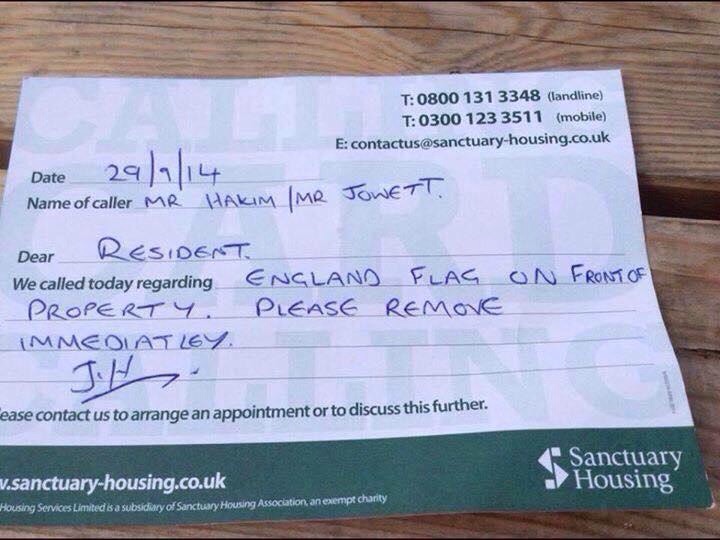 T: 0800 131 3348 (landline)
T: 0300 123 3511 (mobile)
E: contactus@sanctuary-housing.co.uk
Date 29/9/14
Name of caller MR HAKIM / MR JOWETT.
Dear RESIDENT.
We called today regarding ENGLAND FLAG ON FRONT OF
PROPERTY. PLEASE REMOVE
IMMEDIATLEY.
J.H
ease contact us to arrange an appointment or to discuss this further.
v.sanctuary-housing.co.uk
Sanctuary
Housing
Housing Services Limited is a subsidiary of Sanctuary Housing Association, an exempt charity
CALLING
CARD
CALLING